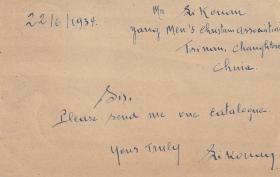 22/6/1934.
Mr Li Kouan
Yong Men's Christian Association
Tsinan, Changhtong
China
Sir,
Please send me one catalogue.
Yours Truly Li Kouan